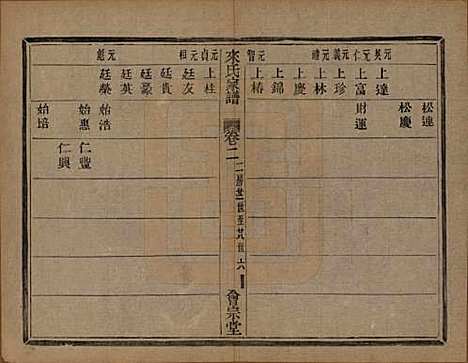 元英 上達 松連
松慶
元仁 上富 財運
元義 上珍
元禮 上林
上慶
元智 上錦
上椿
來氏宗譜
卷二
六
會宗堂
元貞 上桂
元相 廷友
廷貴
廷豪
廷英 始浩
始惠 仁豐
仁興
廷榮 始培